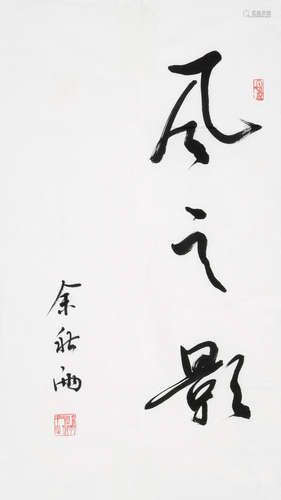 风之影
余秋雨